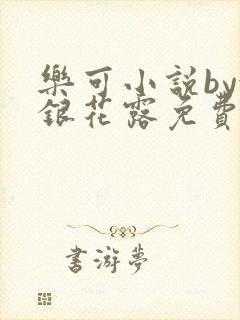 樂可小説by
銀花露免費
書游夢